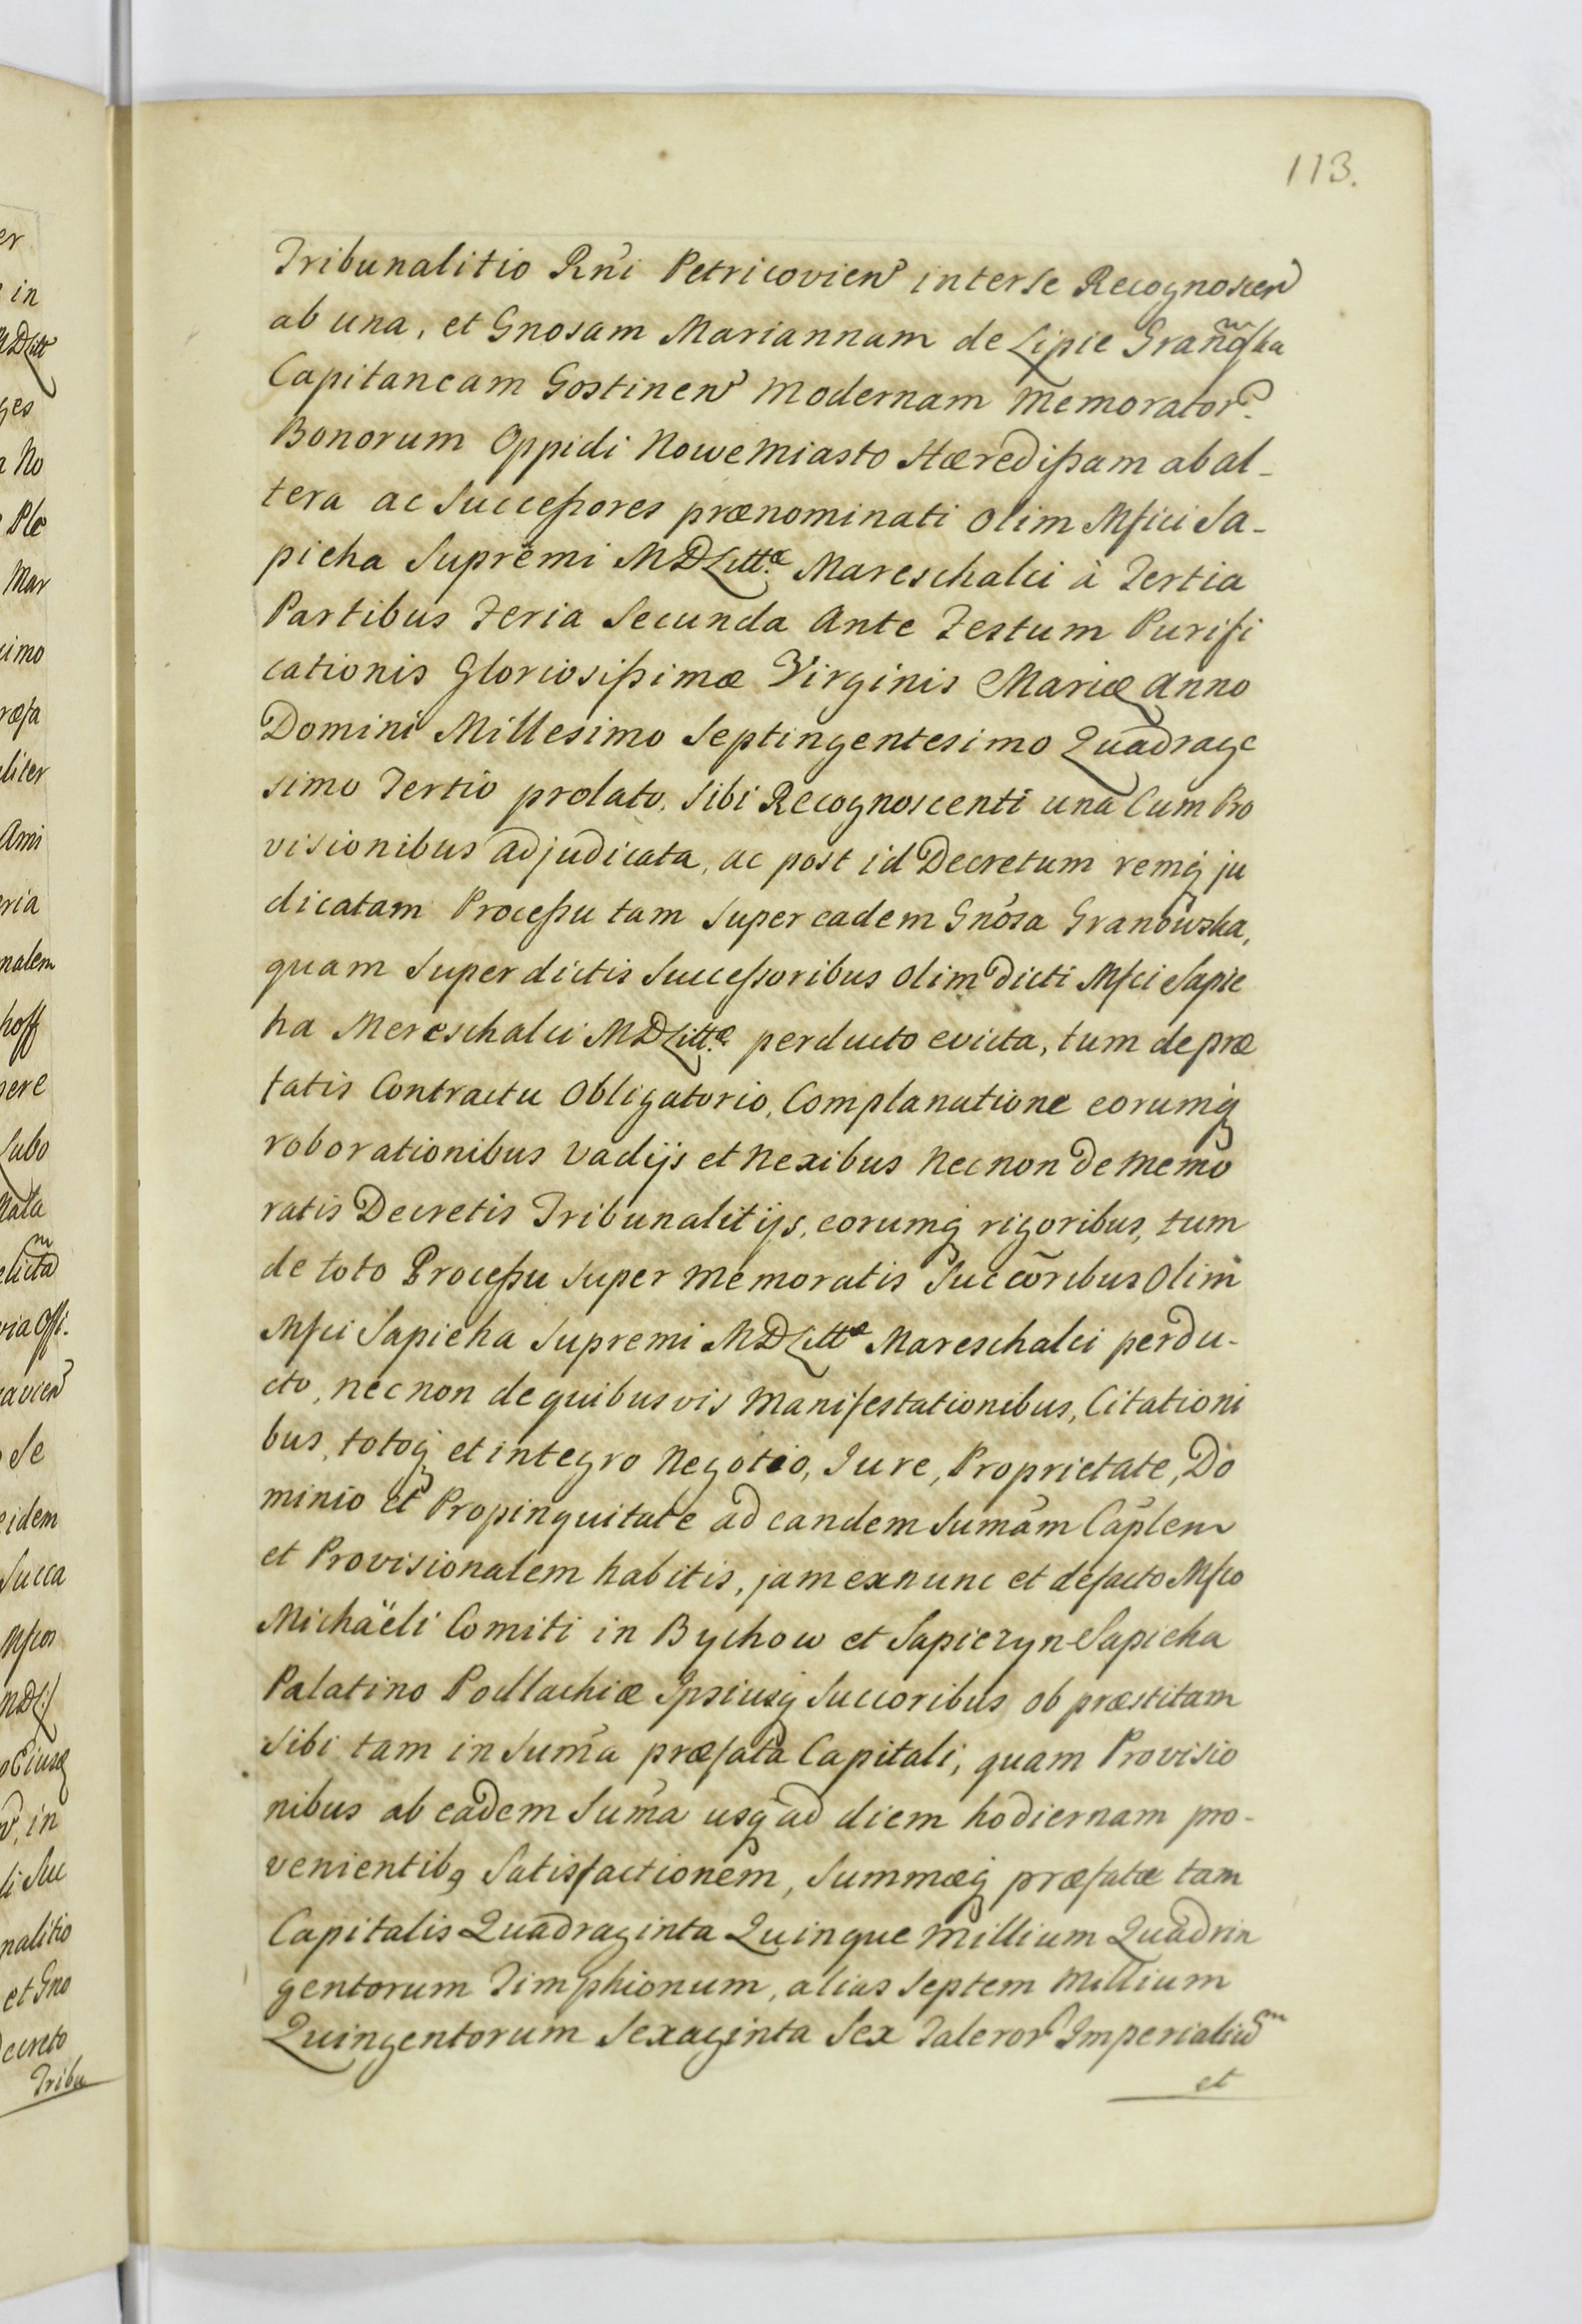 113.
Tribunalitio Rńi Petricovien interse Recognoscen
ab una, et Gnosam Mariannam de Lipie Granowska
Capitaneam Gostinen Modernam Memorator
Bonorum Oppidi Nowe Miasto Hæredißam ab al-
tera ac Succeßores prænominati Olim Mfici Sa-
pieha Supremi MDLittæ Mareschalci à Tertia
Partibus Feria Secunda Ante Festum Purifi
cationis Gloriosißimæ Virginis Mariæ Anno
Domini Millesimo Septingentesimo Quadrage
simo Tertio prolato, sibi Recognoscenti una Cum Pro
visionibus adjudicata, ac post id Decretum remq ju
dicatam Proceßu tam super eadem Gnósa Granowska,
quam super dictis Succeßoribus olim dicti Mfci Sapie
ha Mereschalci MDLittæ perducto evicta, tum de præ
fatis Contractu Obligatorio, Complanatione eorumq
roborationibus Vadijs et Nexibus Necnon de Memo
ratis Decretis Tribunalitijs, eorumq rigoribus, tum
de toto Proceßu super Memoratis Succõribus Olim
Mfci Sapieha Supremi MDLittæ Mareschalci perdu-
cto, necnon de quibusvis Manifestationibus, Citationi
bus, totoq et integro Negotio, Iure, Proprietate, Do
minio et Propinquitate ad eandem Sumám Cáplem
et Provisionalem habitis, jam exnunc et defacto Mfco
Michäeli Comiti in Bychow et Sapiezyn Sapieha
Palatino Podlachiæ Ipsiusq Succoribus ob præstitam
sibi tam in Suḿa præfata Capitali, quam Provisio
nibus ab eadem Suḿa usq ad diem hodiernam pro-
venientibq Satisfactionem, Summæq præfatæ tam
Capitalis Quadraginta Quinque Millium Quadrin
gentorum Timphionum, alias Septem Millium
Quingentorum Sexaginta Sex Taleror Imperialium
et
er
in
MDLitt
ges
a No
Ple
Mar
simo
ræfa
liter
Ami
eria
nalem
hoff
pere
Lubo
Nata
elicta
via Offi.
Se
eidem
Succa
Mfcos
MDL
in
li Suc
nalitio
et Gno
ecreto
Tribu